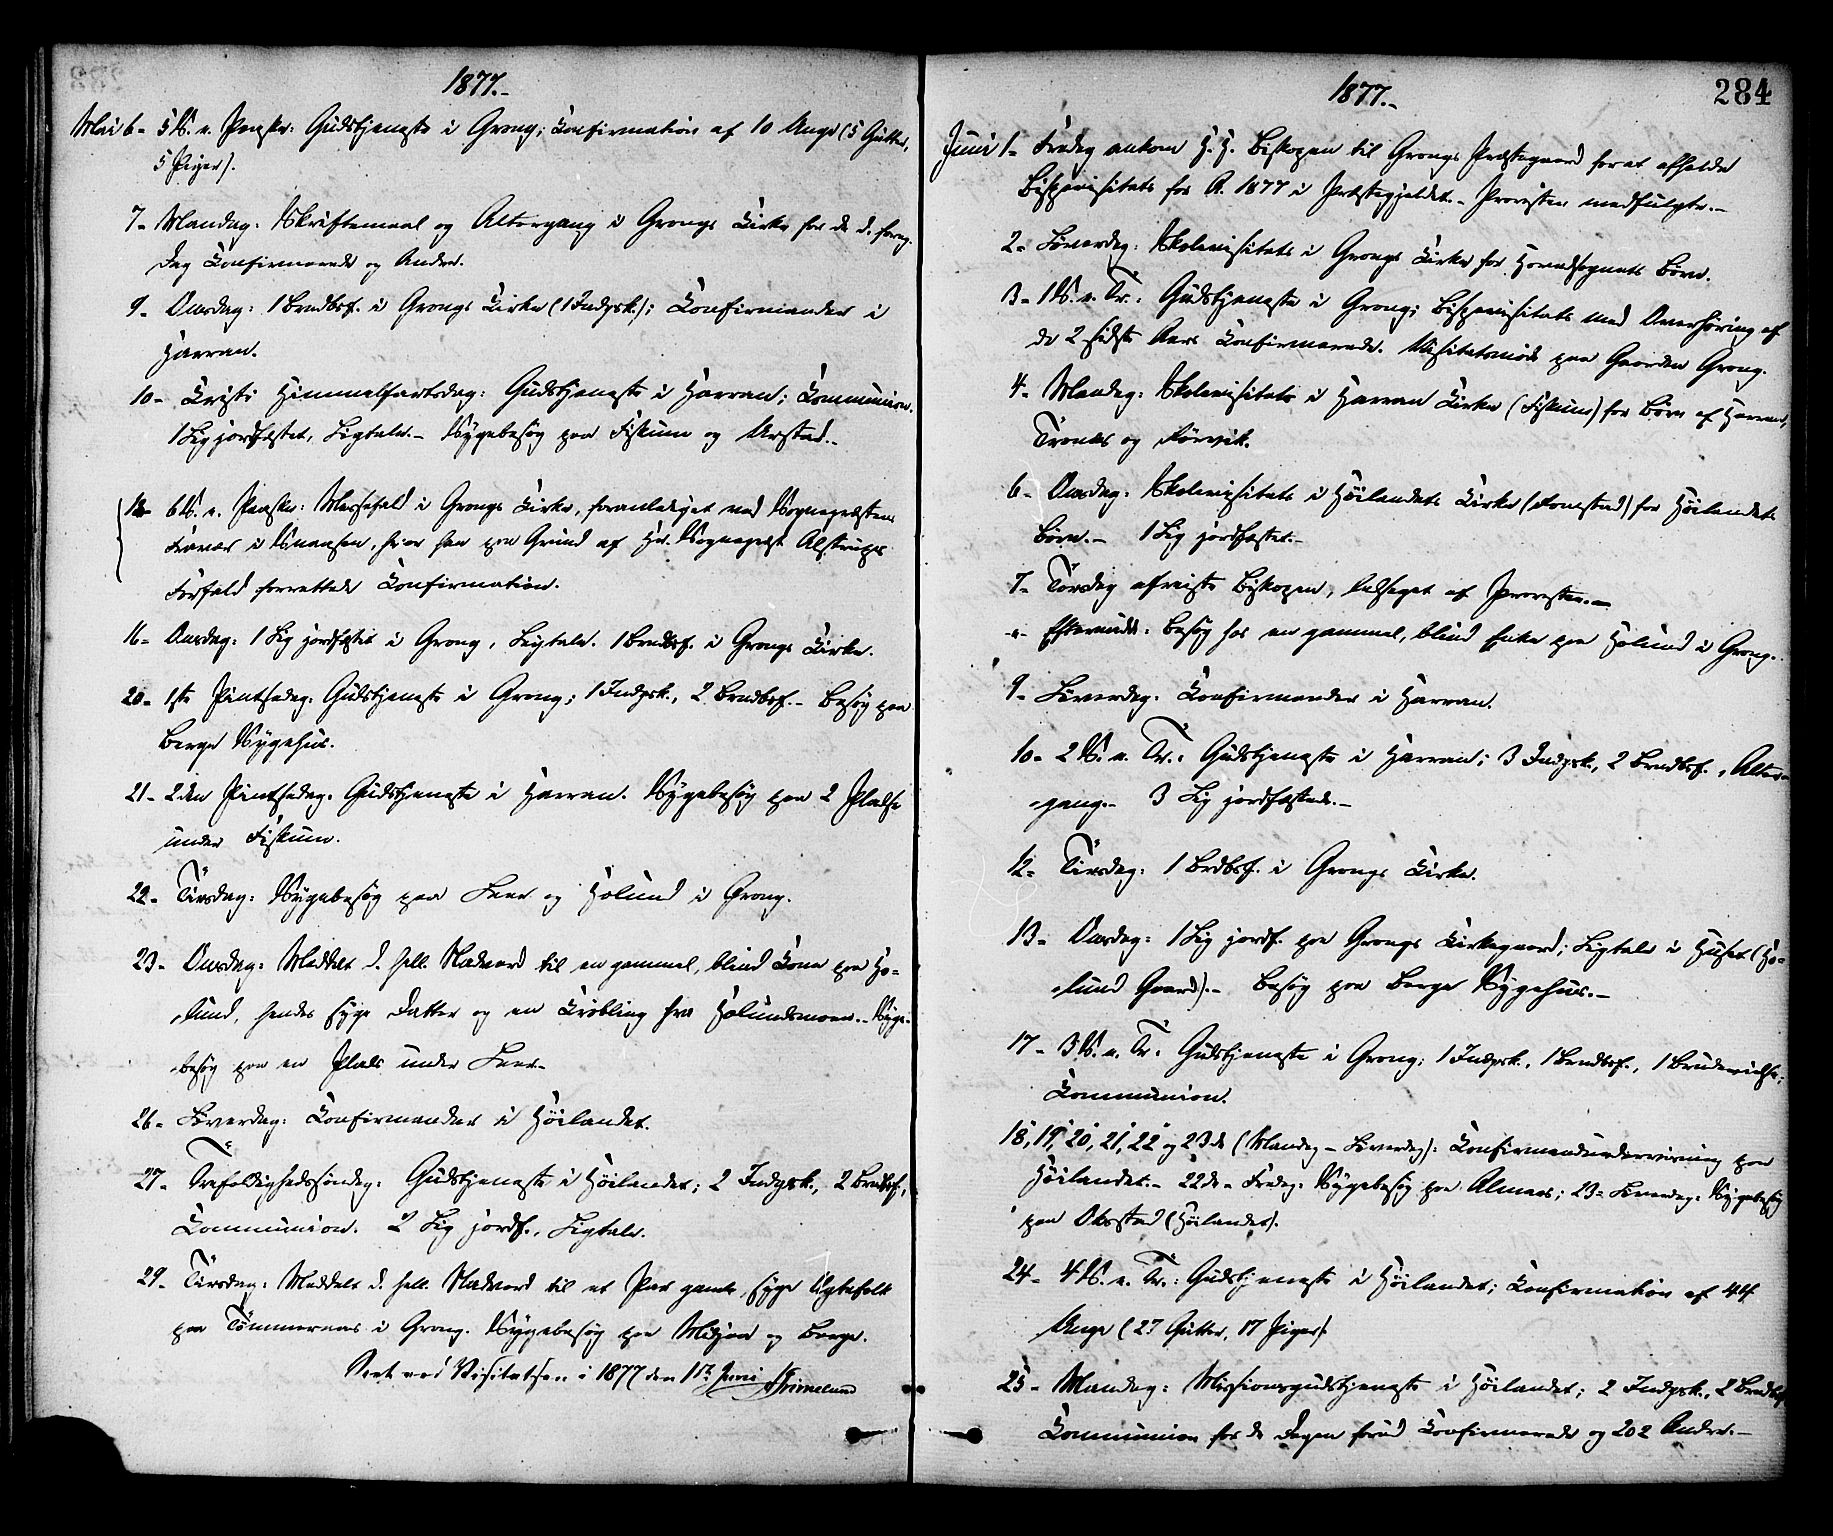 1877.-
Mai 6- 5 S. e. Paaske: Gudstjeneste i Grong; Confirmation af 10 Unge (5 Gutter,
5 Piger).
7- Mandag: Skriftemaal og Altergang i Grongs Kirke for de d. foreg.
Dag Confirmerede og Andre.
9- Onsdag: 1 Brudbsf. i Grongs Kirke (1 Indgsk.); Confirmander i
Harran.
10- Kristi Himmelfartsdag: Gudstjeneste i Harran; Communion.
1 Lig jordfæstet, Ligtale.- Sygebesøg paa Fiskum og Urstad.-
12- 6 S. e. Paaske: Messefald i Grongs Kirke, foranlediget ved Sognepræstens
i Snaasen, hvor han paa Grund af Hr. Sognepræst Alstrups
Forfald forrettede Confirmation.
16- Onsdag: 1 Lig jordfæstet i Grong, Ligtale. 1 Brudbsf. i Grongs Kirke.
20- 1ste Pintsedag: Gudstjeneste i Grong; 1 Indgsk., 2 Brudbsf.- Besøg paa
Berge Sygehus.
21- 2den Pintsedag: Gudstjeneste i Harran. Sygebesøg paa 2 Pladse
under Fiskum.
22- Tirsdag: Sygebesøg paa Leer og Holund i Grong.
23- Onsdag: Meddelt d. hell. Nadverd til en gammel, blind Kone paa Ho-
lund, hendes syge Datter og en Krøbling fra Holundsmoen.- Syge-
besøg paa en Plads under Leer.-
26- Løverdag: Confirmander i Høilandet.
27- Trefoldighedssøndag: Gudstjeneste i Høilandet; 2 Indgsk., 2 Brudbsf.,
Communion. 2 Lig jordf., Ligtale.
29- Tirsdag: Meddelt d. hell. Nadverd til et Par gamle, syge Ægtefolk
paa Tømmeraas i Grong. Sygebesøg paa Medjaa og Berge.
Seet ved Visitatsen i 1877 den 1ste Juni Grimelund
1877.-
284
Juni 1- Fredag ankom H. H. Biskopen til Grongs Præstegaard for at afholde
Bispevisitats for A. 1877 i Præstegjeldet.- Provsten medfulgte.-
2- Løverdag: Skolevisitats i Grongs Kirke for Hovedsognets Børn.
3- 1 S. e. Tr.: Gudstjeneste i Grong; Bispevisitats med Overhøring af
de 2 sidste Aars Confirmerede. Visitatsmøde paa Gaarden Grong.
4- Mandag: Skolevisitats i Harran Kirke (Fiskum) for Børn af Harran,
Tronæs og Sørvik.
6- Onsdag: Skolevisitats i Høilandets Kirke for Høilandets
Børn.- 1 Lig jordfæstet.-
7- Torsdag afreiste Biskopen, ledsaget af Provsten.-
-"- Eftermidd: Besøg hos en gammel, blind Enke paa Holund i Grong.
9- Løverdag: Confirmander i Harran.
10- 2 S. e. Tr.: Gudstjeneste i Harran; 3 Indgsk., 2 Brudbsf., Alter-
gang.- 3 Lig jordfæstede.-
12- Tirsdag: 1 Brdbsf. i Grongs Kirke.
13- Onsdag: 1 Lig jordf. paa Grongs Kirkegaard; Ligtale i Huset (Ho-
lund Gaard).- Besøg paa Berge Sygehus.-
17- 3 S. e. Tr: Gudstjeneste i Grong; 1 Indgsk., 1 Brudbsf., 1 Brudevielse;
Communion.
18, 19, 20, 21, 22 og 23de (Mandag - Løverdag): Confirmandundervisning paa
Høilandet.- 22de- Fredag: Sygebesøg paa Almaas; 23- Løverdag: Sygebesøg
paa Okstad (Høilandet).
24- 4 S. e. Tr.: Gudstjeneste i Høilandet; Confirmation af 44
Unge (27 Gutter, 17 Piger).
25- Mandag: Missionsgudstjeneste i Høilandet; 2 Indgsk., 2 Brudbsf.
Communion for de Dagen forud Confirmerede og 202 Andre.-